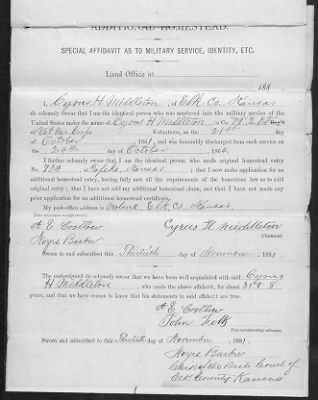 ADDITIONAL HOMESTEAD.
SPECIAL AFFIDAVIT AS TO MILITARY SERVICE, IDENTITY, ETC.
Land Office at
188
I, Cyrus H. Middleton, of Elk Co. Kansas
do solemnly swear that I am the identical person who was mustered into the military service of the
United States under the name of Cyrus H Middleton, in Co.
of Vet Res Corps Volunteers, on the 21st day
of October 1861, and was honorably discharged from such service on
the 24th day of October, 186
I further solemnly swear that I am the identical person who made original homestead entry
No. at Topeka, Kansas; that I now make application for an
additional homestead entry, having fully met all the requirements of the homestead law as to said
original entry; that I have not sold my additional homestead claim, and that I have not made any
prior application for an additional homestead certificate.
My post-office address is Moline, Elk Co Kansas.
Cyrus H. Middleton
Claimant.
Noyse Barber
Sworn to and subscribed this Thirtieth day of November, 1881.
The undersigned do solemnly swear that we have been well acquainted with said Cyrus
H. Middleton, who made the above affidavit, for about
years, and that we have reason to know that his statements in said affidavit are true.
John
Two corroborating witnesses.
Sworn to and subscribed this Thirtieth day of November, 1881.
Noyse Barber
Clerk of the Dist. Court of
Elk County Kansas